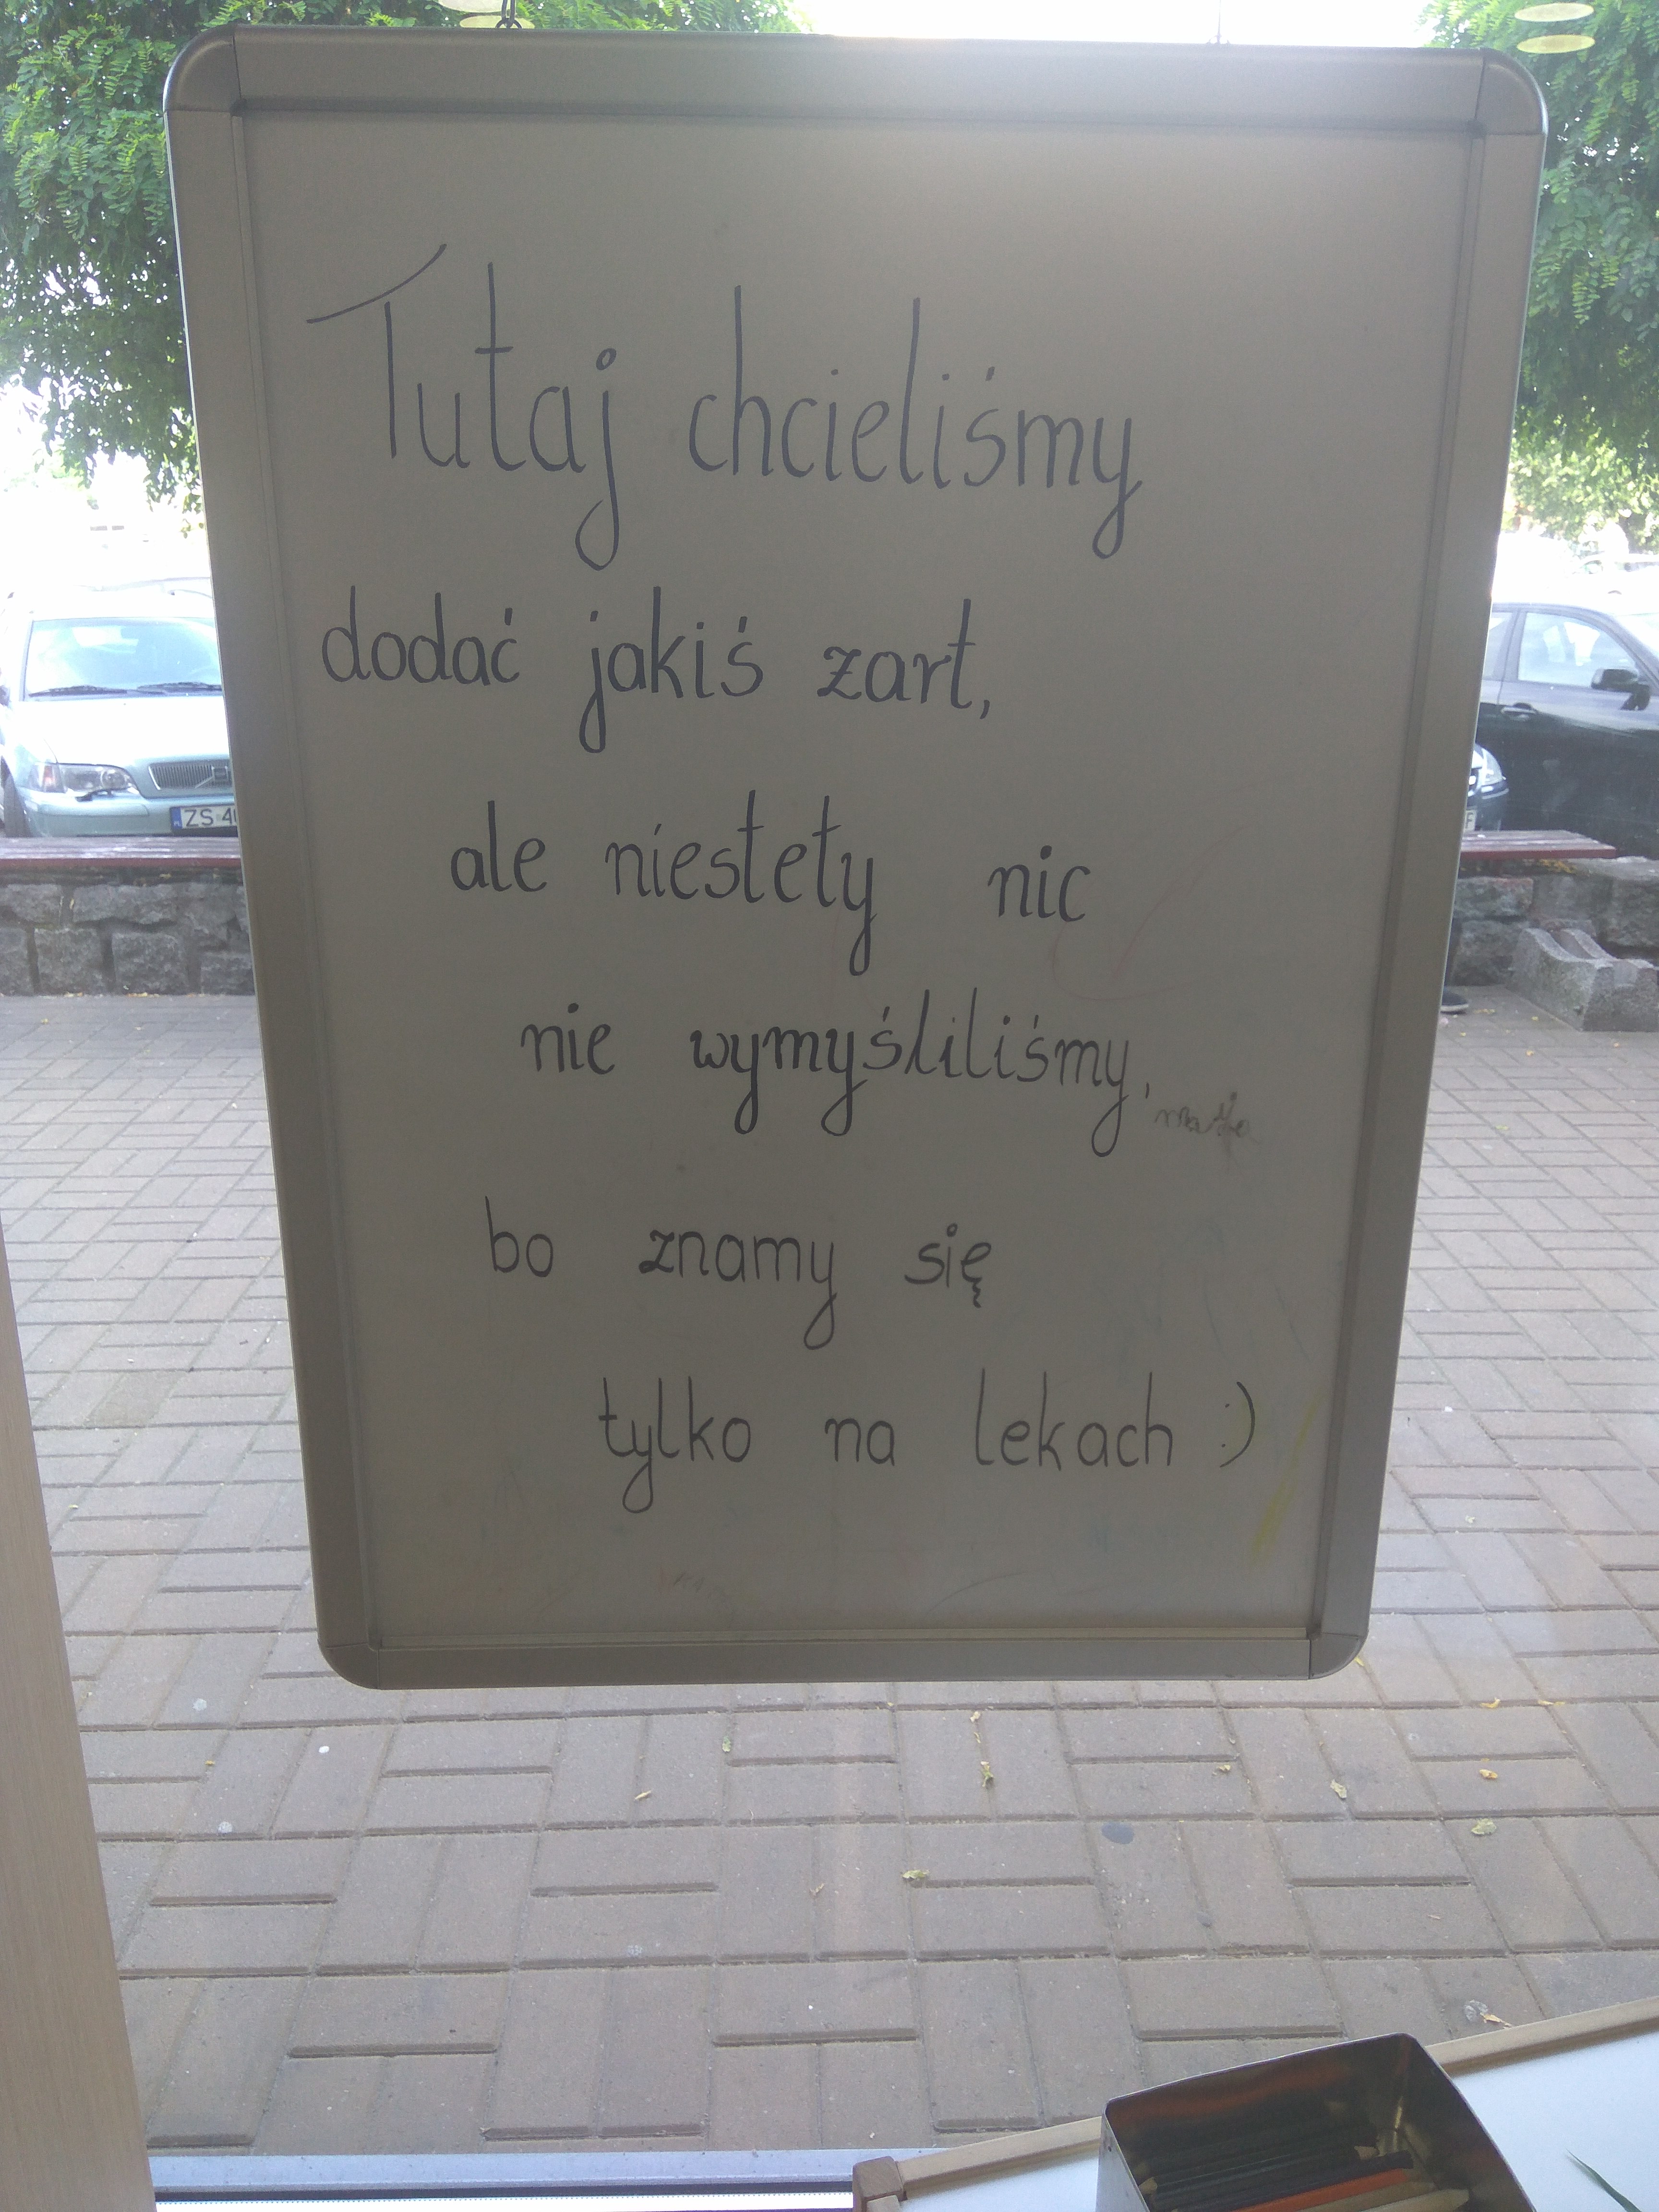 Tutaj chcieliśmy
dodać jakiś zart,
ale niestety nic
nie wymyśliliśmy,
bo znamy się
tylko na lekach :)
ZS